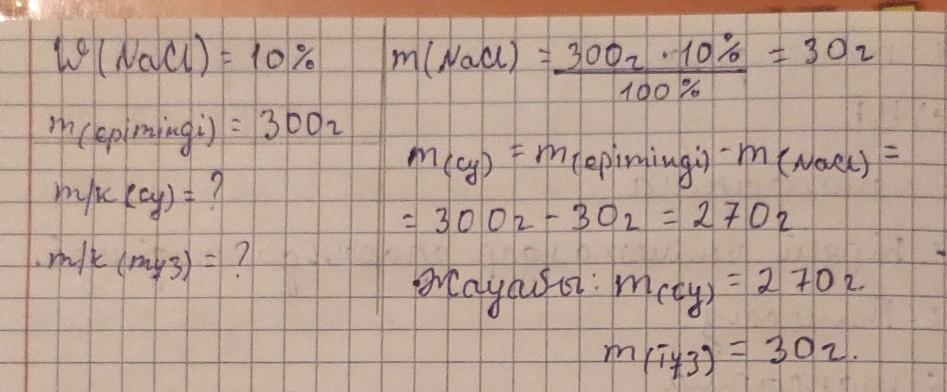 W(NaCl) = 10%
m(ерітінді) = 300г
m/к (су) = ?
m/к (тұз) = ?
m(NaCl) = 300г · 10% / 100% = 30г
m(су) = m(ерітінді) - m(NaCl) =
= 300г - 30г = 270г
Жауабы: m(су) = 270г.
m(тұз) = 30г.